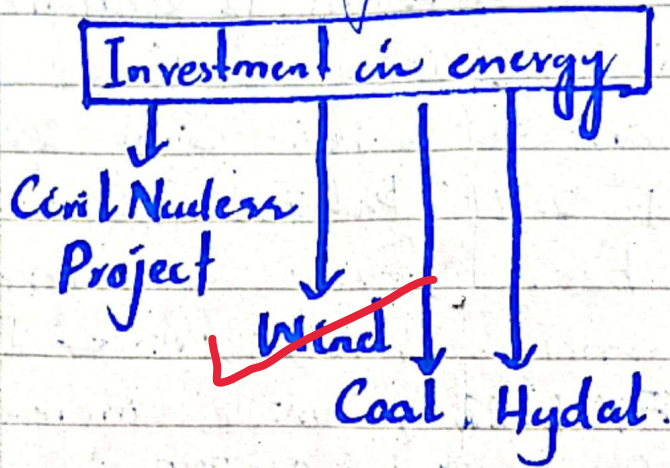 Investment in energy
Civil Nuclear
Project
Wind
Coal. Hydal.